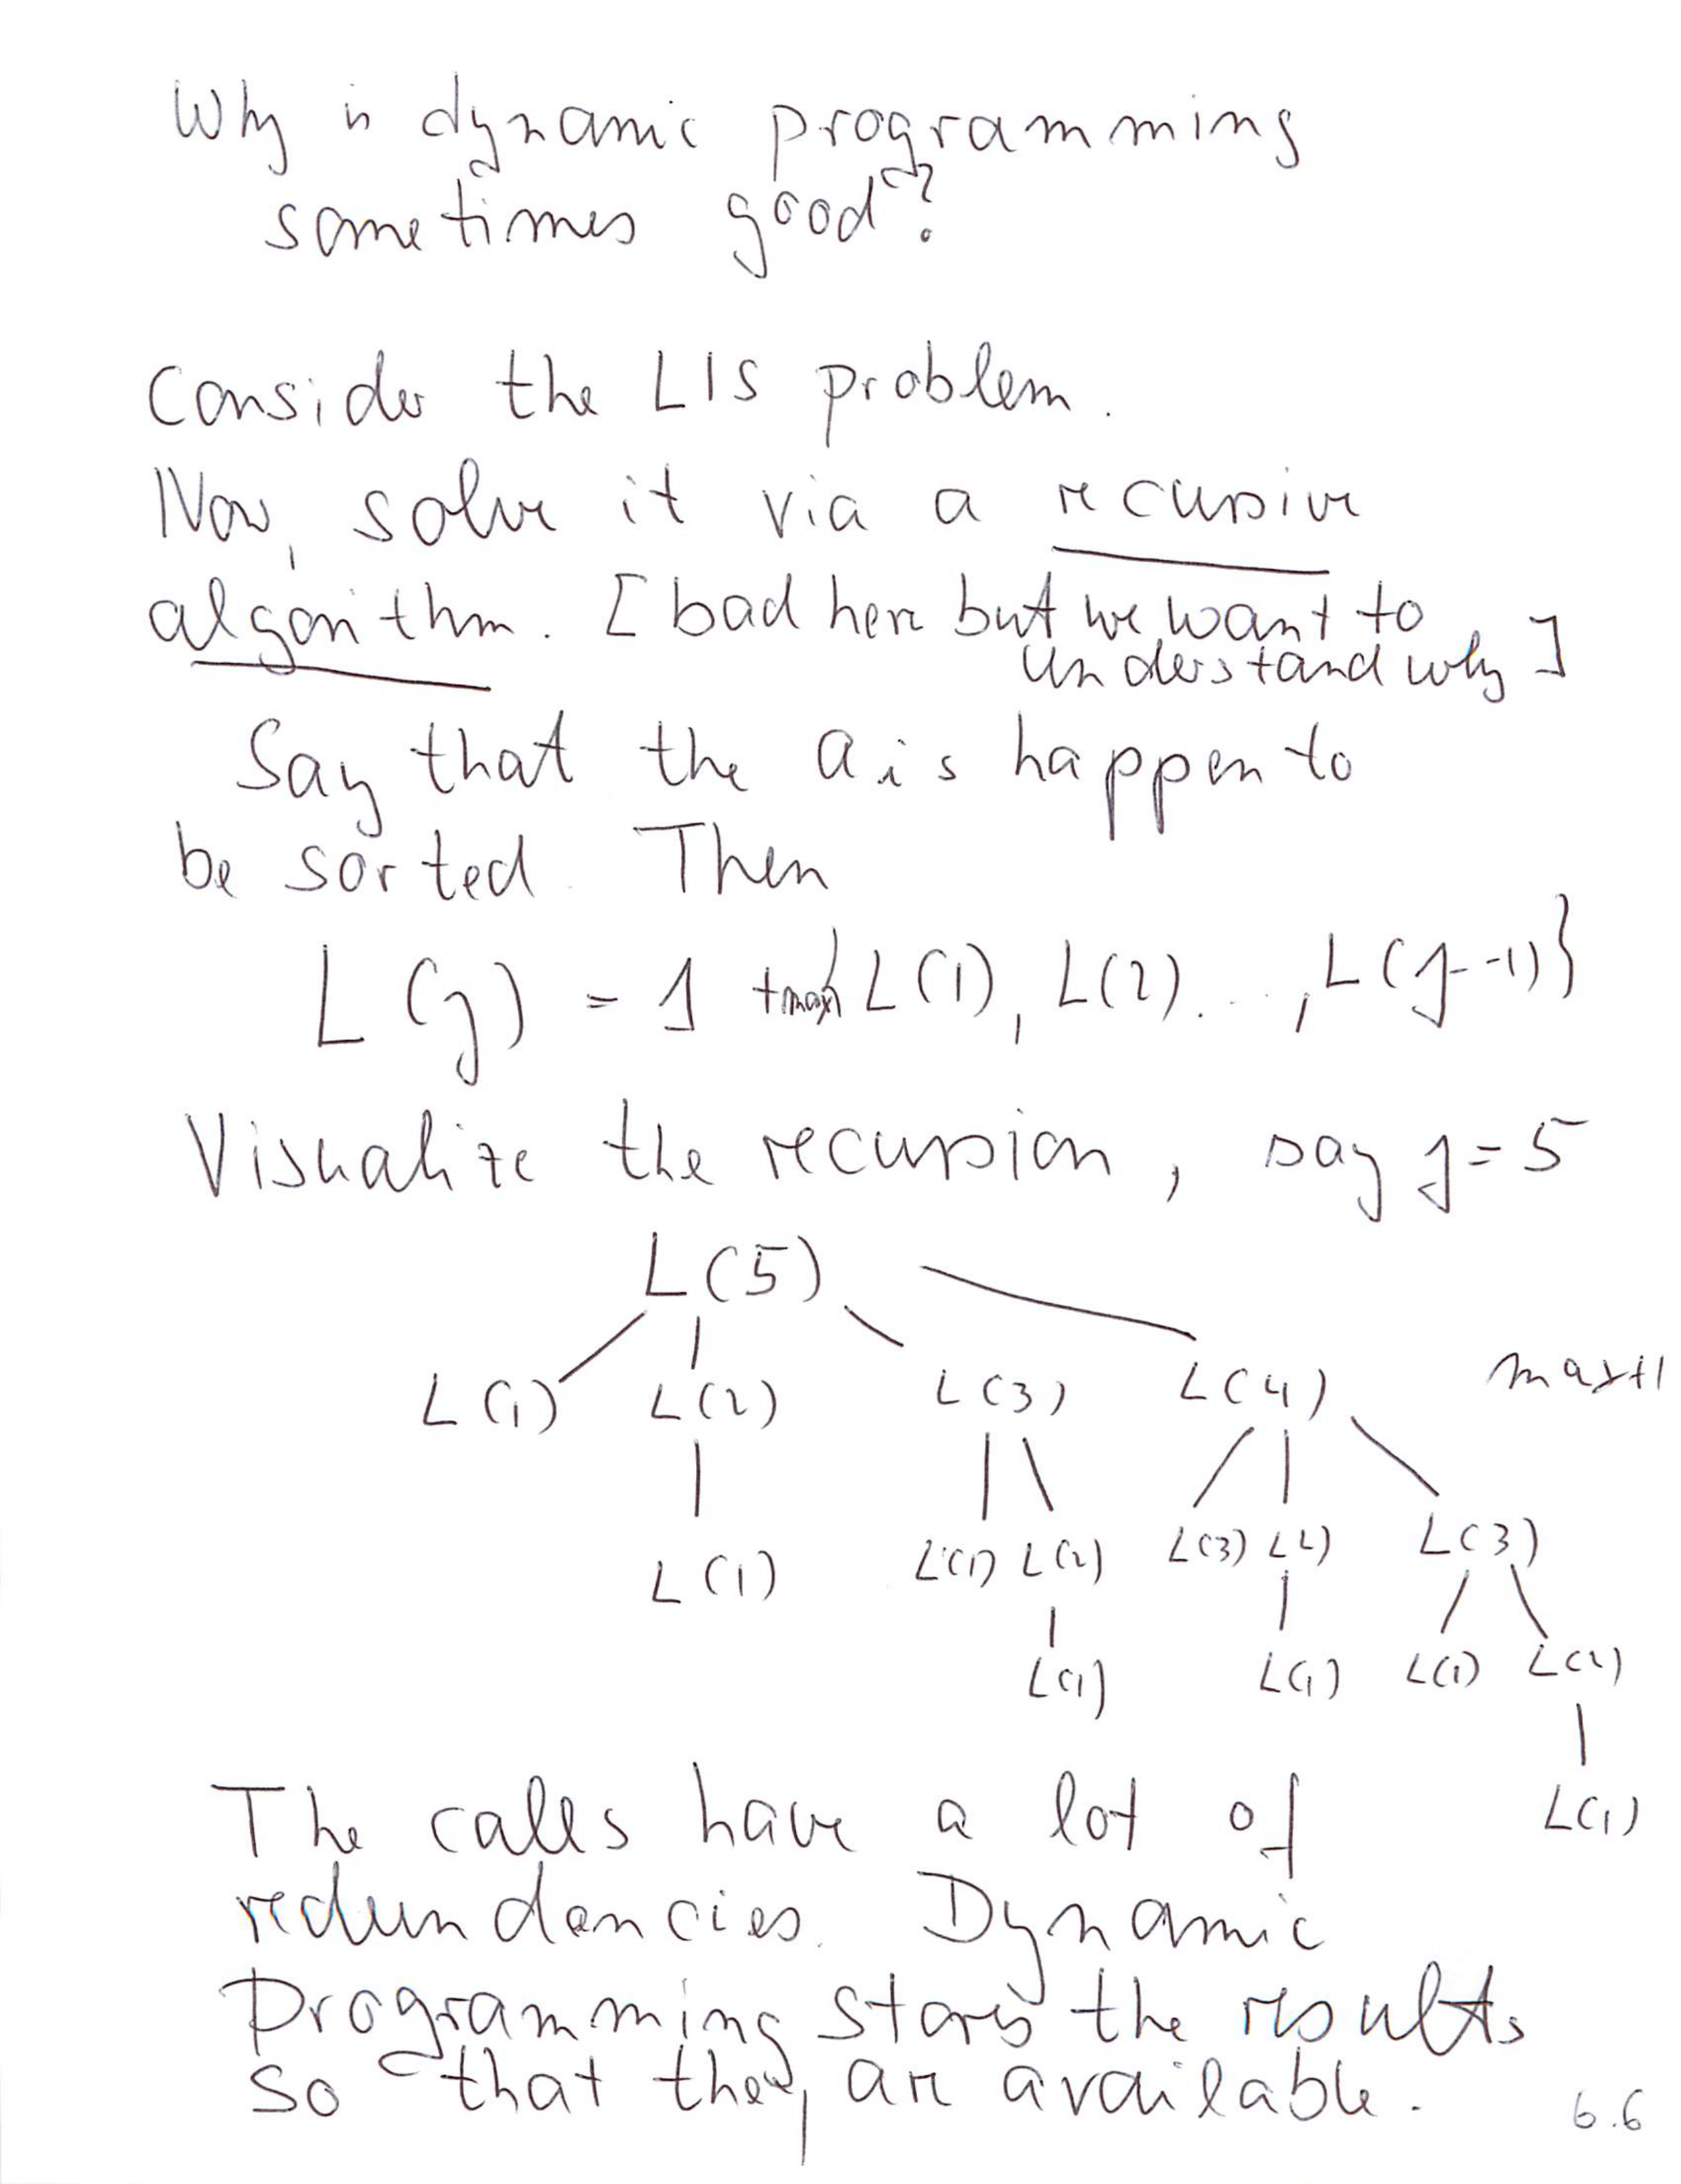 Why is dynamic programming
sometimes good?
Consider the LIS problem.
Now, solve it via a recursive
algorithm. [bad here but we want to
understand why]
Say that the ais happen to
be sorted. Then
L(j) = 1 + max{L(1), L(2)..., L(j-1)}
Visualize the recursion, say j=5
L(5)
L(1) L(2) L(3) L(4) max+1
L(1) L(1) L(2) L(3) L(2) L(3)
L(1) L(1) L(1) L(2)
L(1)
The calls have a lot of
redundancies. Dynamic
Programming stores the results
so that they are available.
6.6